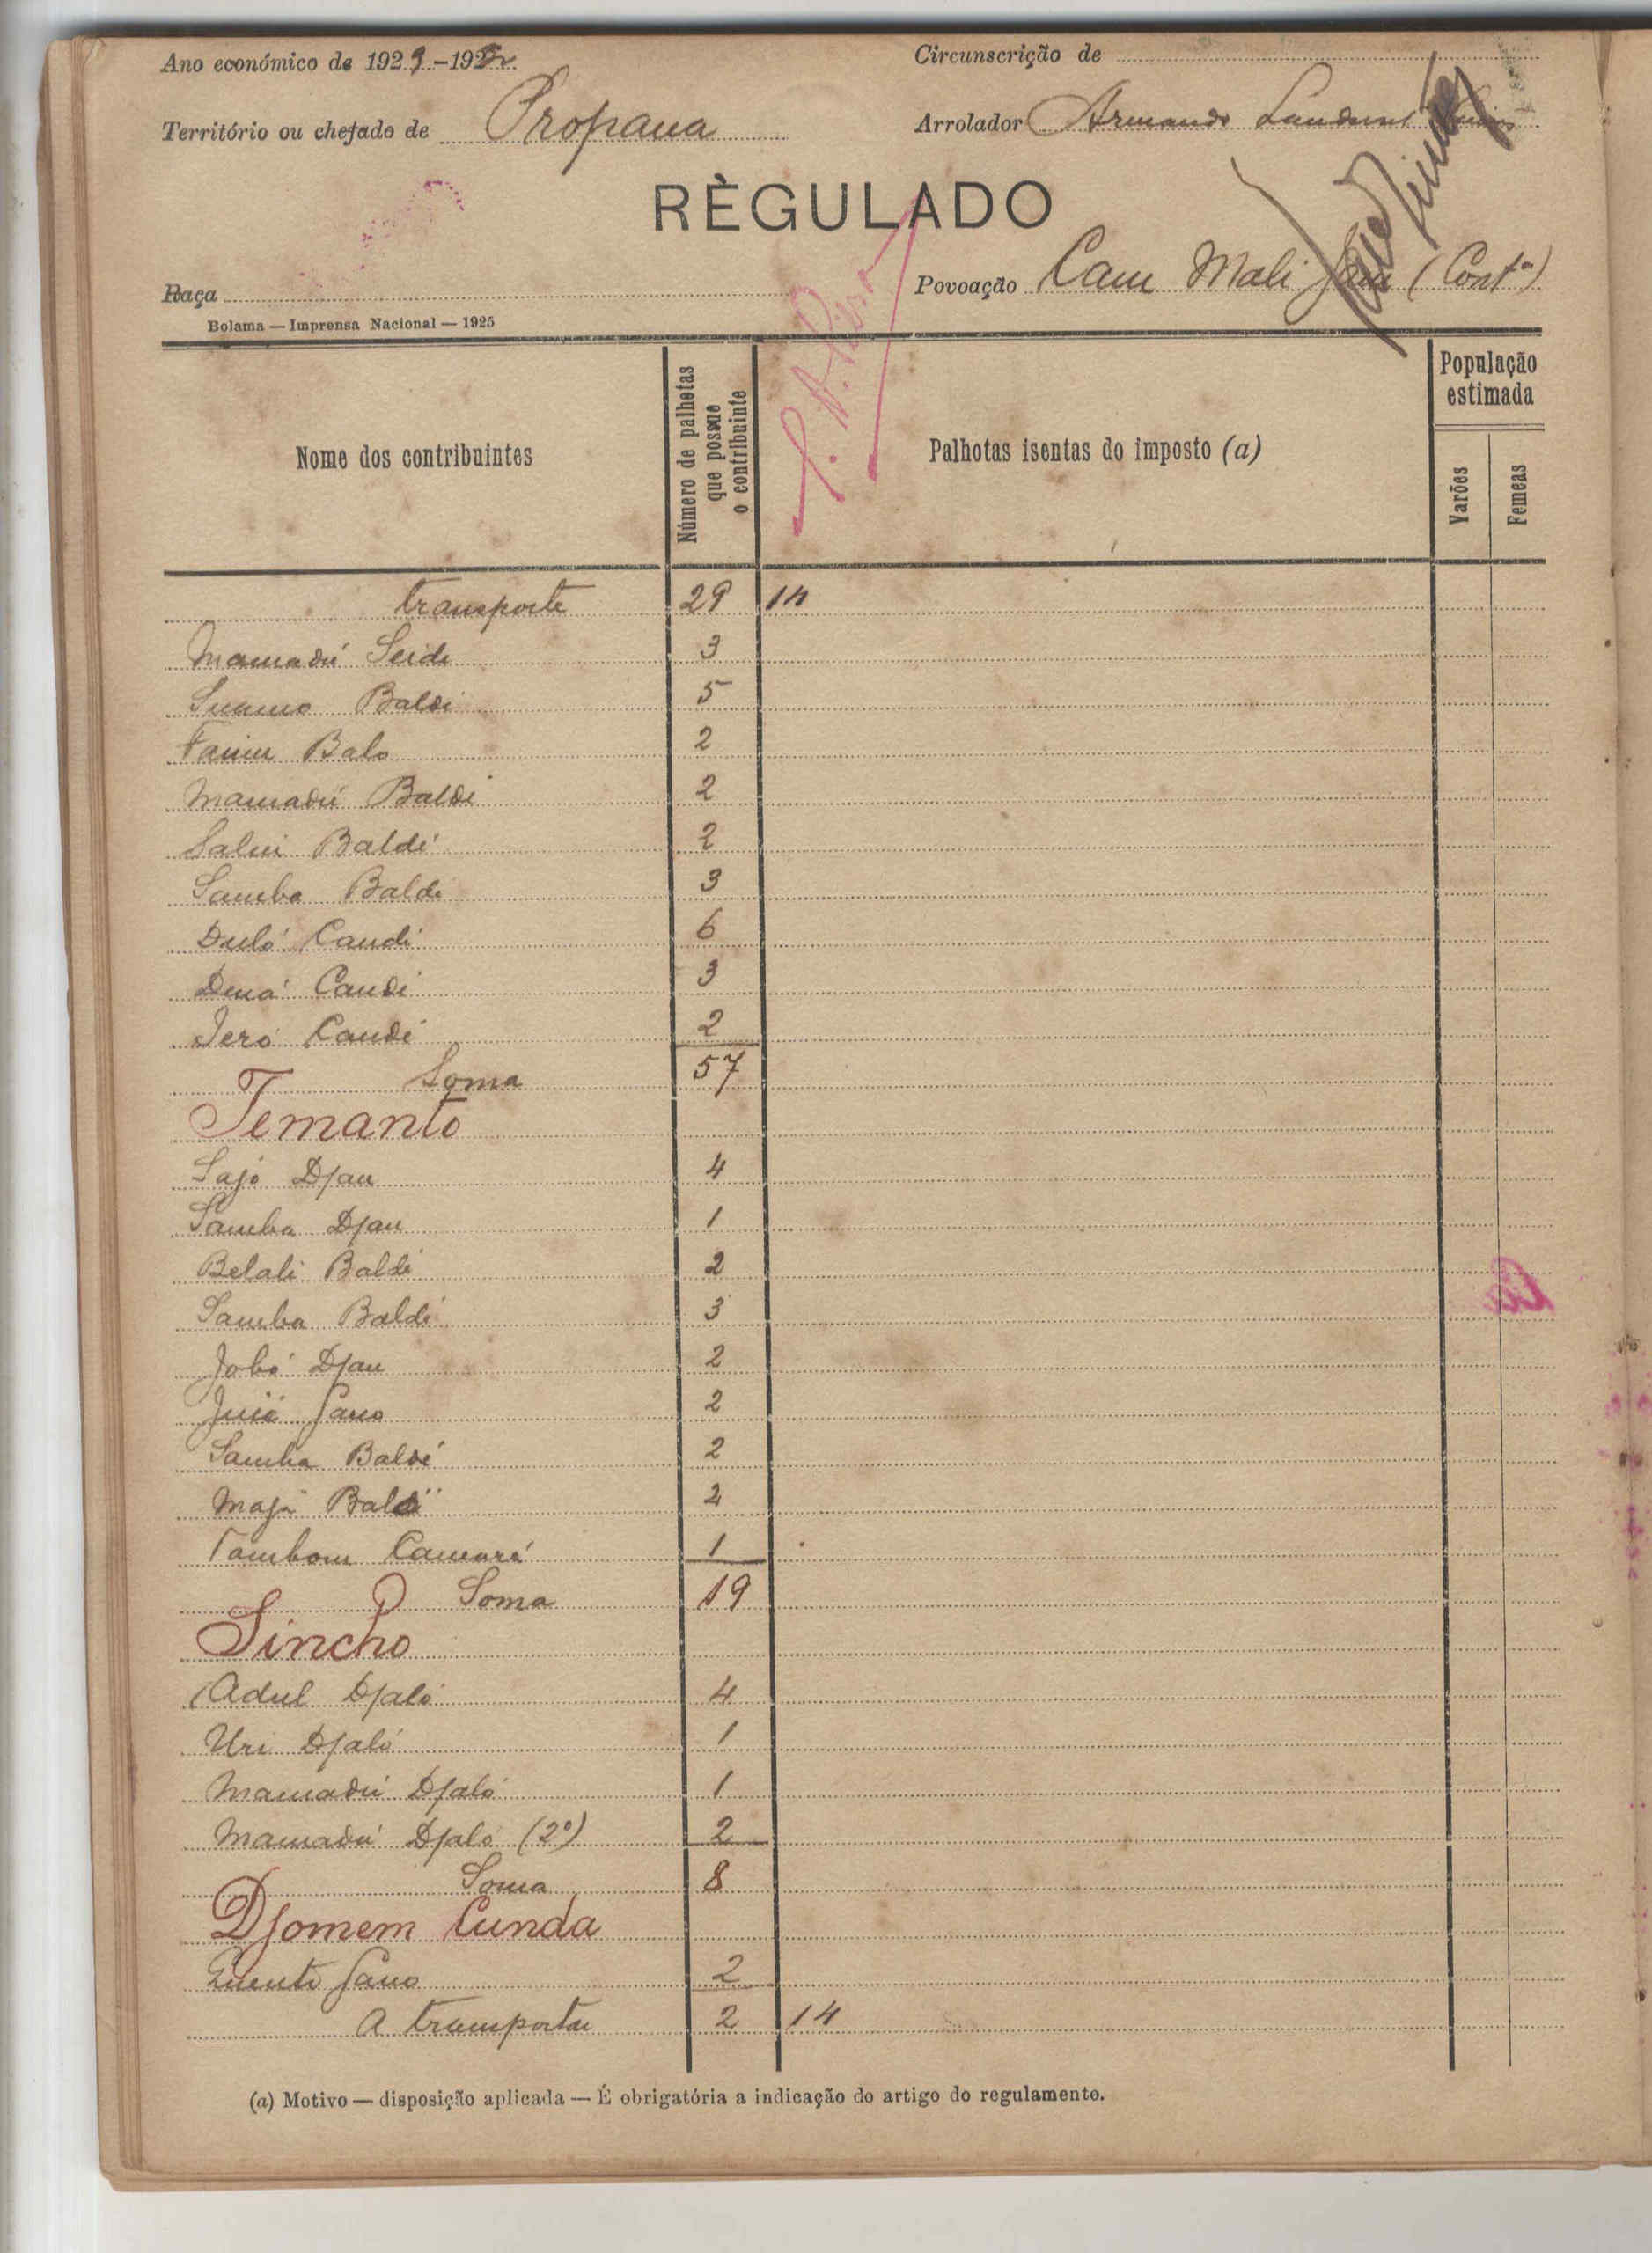 Ano económico de 1929-192
Circunscrição de
Território ou chefado de Propana
Arrolador Armando
RÈGULADO
Raça
Povoação Cam Mali (Cont.ª)
Bolama — Imprensa Nacional — 1925
Nome dos contribuintes
Número de palhotas que possue o contribuinte
Palhotas isentas do imposto (a)
População estimada
Varões
Femeas
transporte 29 14
Mamadú Seide 3
Baldé 5
Balo 2
Mamadú Baldé 2
Baldé 2
Samba Baldé 3
Duló Candé 6
Demá Candé 3
Jeró Candé 2
Soma 57
Temanto
Sajó Djau 4
Samba Djau 1
Belali Baldé 2
Samba Baldé 3
Jobó Djau 2
Sano 2
Samba Baldé 2
Majá Baldé 2
Tambom Camará 1
Soma 19
Sincho
Adul Djaló 4
Uri Djaló 1
Mamadú Djaló 1
Mamadú Djaló (2º) 2
Soma 8
Djomem Cunda
Quenti Sano 2
A transportar 2 14
(a) Motivo — disposição aplicada — É obrigatória a indicação do artigo do regulamento.